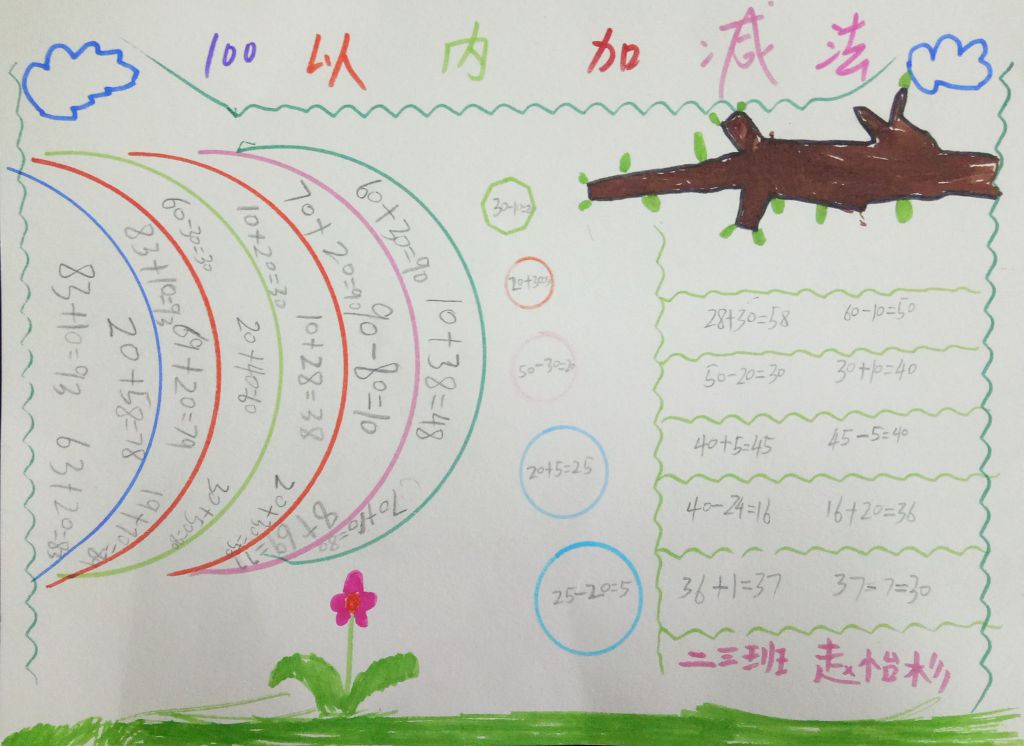 100以内加减法
83+10=93 63+20=83
20+58=78
83+10=93 69+20=79 19+70=89
60-30=30
10+20=30 20+40=60
70+20=90 10+28=38
60+20=90 90-80=10
10+38=48
70+10=80
30-10=2
50-30=20
20+5=25
25-20=5
28+30=58 60-10=50
50-20=30 30+10=40
40+5=45 45-5=40
40-24=16 16+20=36
36+1=37 37-7=30
二三班 赵怡杉